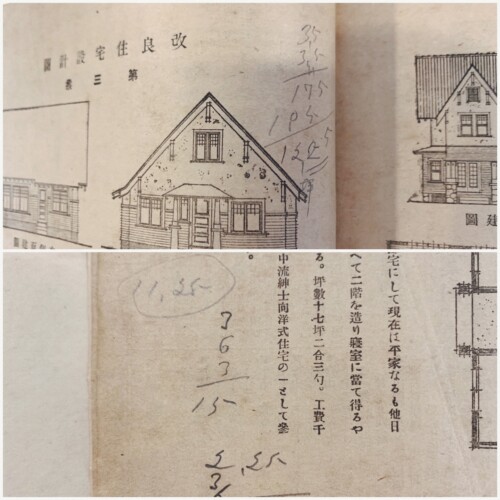 改良住宅設計圖
第三案
3,5
3,5
175
建圖
宅にして現在は平家なるも他日
へて二階を造り寢室に當て得るや
る。坪數十七坪二合三勺。工費千
中流紳士向洋式住宅の一として參
。
11,25
3
6
3
15
2,25
3